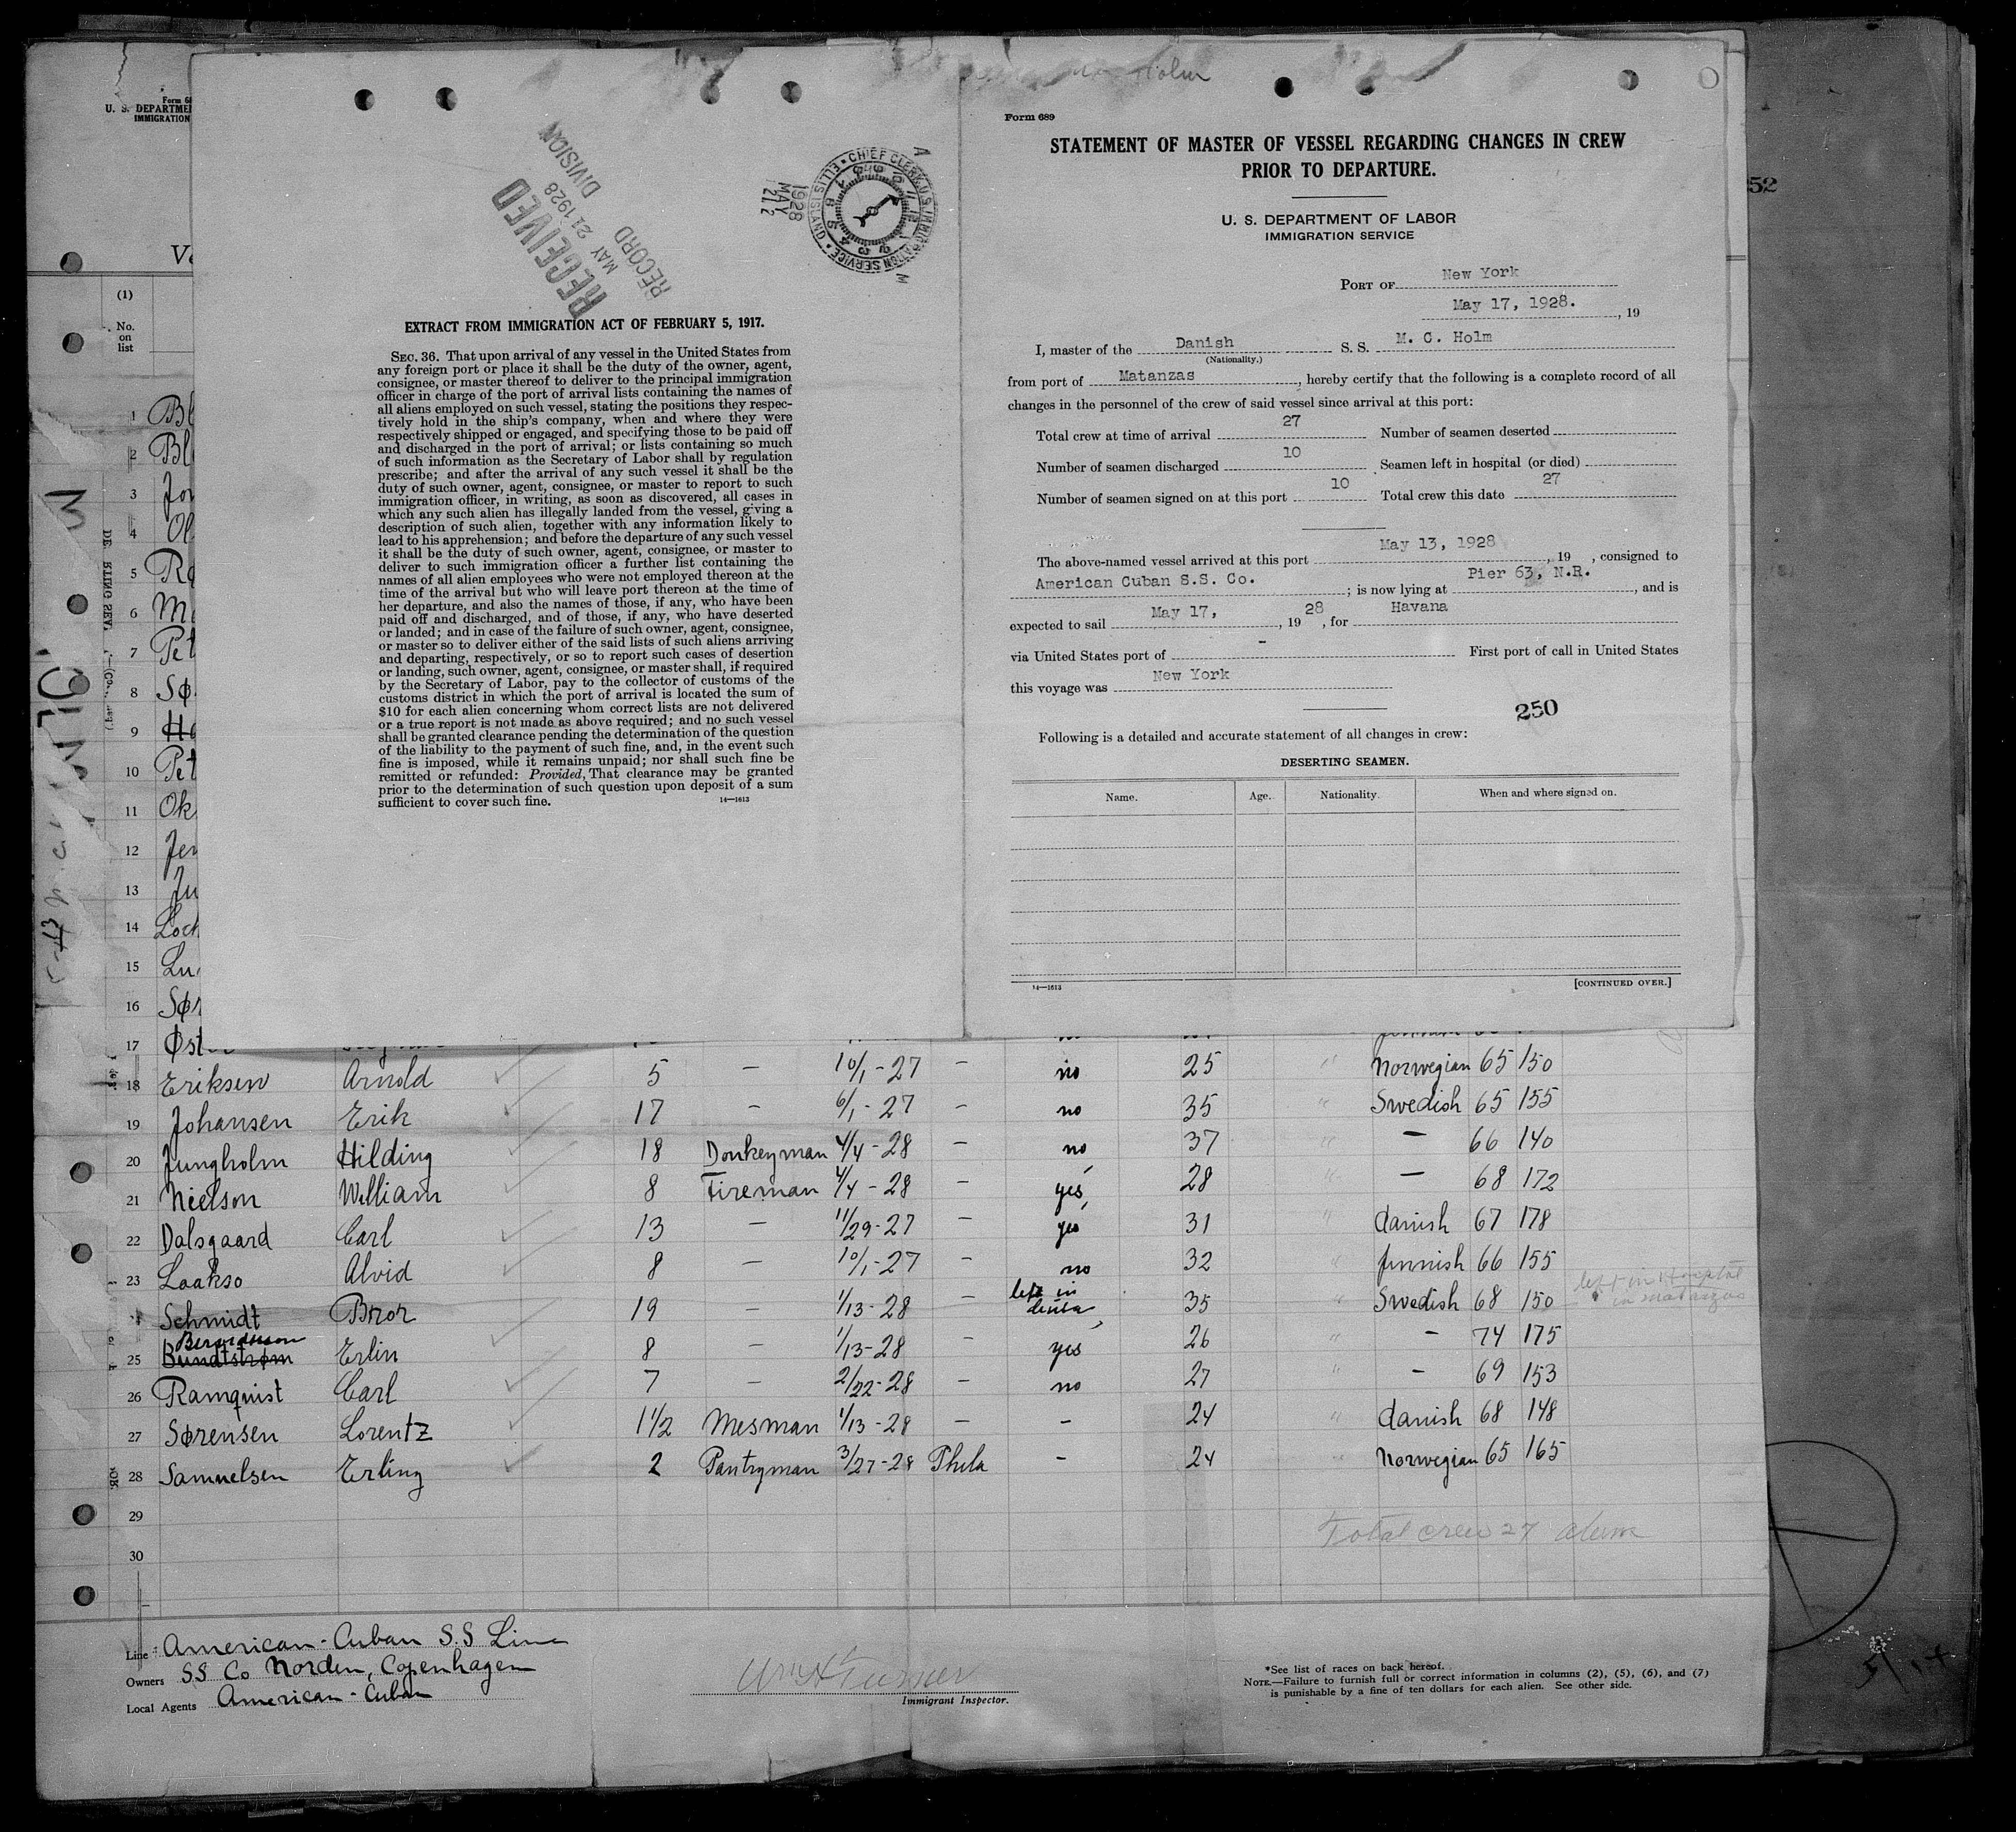 Form 689
STATEMENT OF MASTER OF VESSEL REGARDING CHANGES IN CREW
PRIOR TO DEPARTURE.
U. S. DEPARTMENT OF LABOR
IMMIGRATION SERVICE
PORT OF New York
May 17, 1928. , 19
I, master of the Danish S. S. M. C. Holm
(Nationality.)
from port of Matanzas, hereby certify that the following is a complete record of all
changes in the personnel of the crew of said vessel since arrival at this port:
Total crew at time of arrival 27 Number of seamen deserted
Number of seamen discharged 10 Seamen left in hospital (or died)
Number of seamen signed on at this port 10 Total crew this date 27
The above-named vessel arrived at this port May 13, 1928, 19 , consigned to
American Cuban S.S. Co. ; is now lying at Pier 63, N.R., and is
expected to sail May 17, , 1928, for Havana
via United States port of - First port of call in United States
this voyage was New York
250
Following is a detailed and accurate statement of all changes in crew:
DESERTING SEAMEN.
Name. Age. Nationality. When and where signed on.
14—1613 [CONTINUED OVER.]
RECEIVED
MAY 21 1928
RECORD DIVISION
1928
MAY
21
CHIEF CLERK, U.S. IMMIGRATION SERVICE • ELLIS ISLAND •
EXTRACT FROM IMMIGRATION ACT OF FEBRUARY 5, 1917.
SEC. 36. That upon arrival of any vessel in the United States from
any foreign port or place it shall be the duty of the owner, agent,
consignee, or master thereof to deliver to the principal immigration
officer in charge of the port of arrival lists containing the names of
all aliens employed on such vessel, stating the positions they respec-
tively hold in the ship's company, when and where they were
respectively shipped or engaged, and specifying those to be paid off
and discharged in the port of arrival; or lists containing so much
of such information as the Secretary of Labor shall by regulation
prescribe; and after the arrival of any such vessel it shall be the
duty of such owner, agent, consignee, or master to report to such
immigration officer, in writing, as soon as discovered, all cases in
which any such alien has illegally landed from the vessel, giving a
description of such alien, together with any information likely to
lead to his apprehension; and before the departure of any such vessel
it shall be the duty of such owner, agent, consignee, or master to
deliver to such immigration officer a further list containing the
names of all alien employees who were not employed thereon at the
time of the arrival but who will leave port thereon at the time of
her departure, and also the names of those, if any, who have been
paid off and discharged, and of those, if any, who have deserted
or landed; and in case of the failure of such owner, agent, consignee,
or master so to deliver either of the said lists of such aliens arriving
and departing, respectively, or so to report such cases of desertion
or landing, such owner, agent, consignee, or master shall, if required
by the Secretary of Labor, pay to the collector of customs of the
customs district in which the port of arrival is located the sum of
$10 for each alien concerning whom correct lists are not delivered
or a true report is not made as above required; and no such vessel
shall be granted clearance pending the determination of the question
of the liability to the payment of such fine, and, in the event such
fine is imposed, while it remains unpaid; nor shall such fine be
remitted or refunded: Provided, That clearance may be granted
prior to the determination of such question upon deposit of a sum
sufficient to cover such fine. 14—1613
U. S. DEPARTME
IMMIGRATION
(1)
No.
on
list
1 Bl
2 Bl
3 Jo
4 Ol
5 Ra
6 Ma
7 Pet
8 Sø
9 Ha
10 Pet
11 Ok
12 Jen
13 Ju
14 Loch
15 Lu
16 Sør
17 Øst
18 Eriksen Arnold 5 — 10/1-27 — no 25 " Norwegian 65 150
19 Johansen Erik 17 — 6/1-27 — no 35 " Swedish 65 155
20 Jungholm Hilding 18 Donkeyman 4/4-28 — no 37 " — 66 140
21 Nielson William 8 Fireman 4/4-28 — yes 28 " — 68 172
22 Dalsgaard Carl 13 — 11/29-27 — yes 31 " danish 67 178
23 Laakso Alvid 8 — 10/1-27 — no 32 " finnish 66 155
Schmidt Bror 19 — 1/13-28 — left in 35 " Swedish 68 150 left in Hospital in Matanzas
25 Bundtstrøm Erlin 8 — 1/13-28 — yes 26 " — 74 175
26 Ramquist Carl 7 — 2/22-28 — no 27 " — 69 153
27 Sørensen Lorentz 1 1/2 Mesman 1/13-28 — - 24 " danish 68 148
28 Samuelsen Erling 2 Pantryman 3/27-28 Phila - 24 " Norwegian 65 165
29
30
Total crew 27 aliens
Line American-Cuban S.S Line
Owners SS Co Norden, Copenhagen
Local Agents American-Cuban
Immigrant Inspector.
*See list of races on back hereof.
NOTE.—Failure to furnish full or correct information in columns (2), (5), (6), and (7)
is punishable by a fine of ten dollars for each alien. See other side.